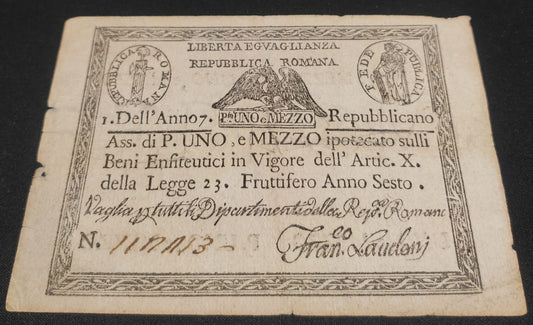 LIBERTA EGVAGLIANZA
REPUBBLICA ROMANA
REPUBBLICA ROMANA
FEDE PUBLICA
1. Dell'Anno 7. P.ti UNO e MEZZO Repubblicano
Ass. di P. UNO, e MEZZO ipotecato sulli
Beni Enfiteutici in Vigore dell'Artic. X.
della Legge 23. Fruttifero Anno Sesto.
Vaglia p tutti li Dipartimenti della Rep.a Romana
N.
Fran.co Laudonj